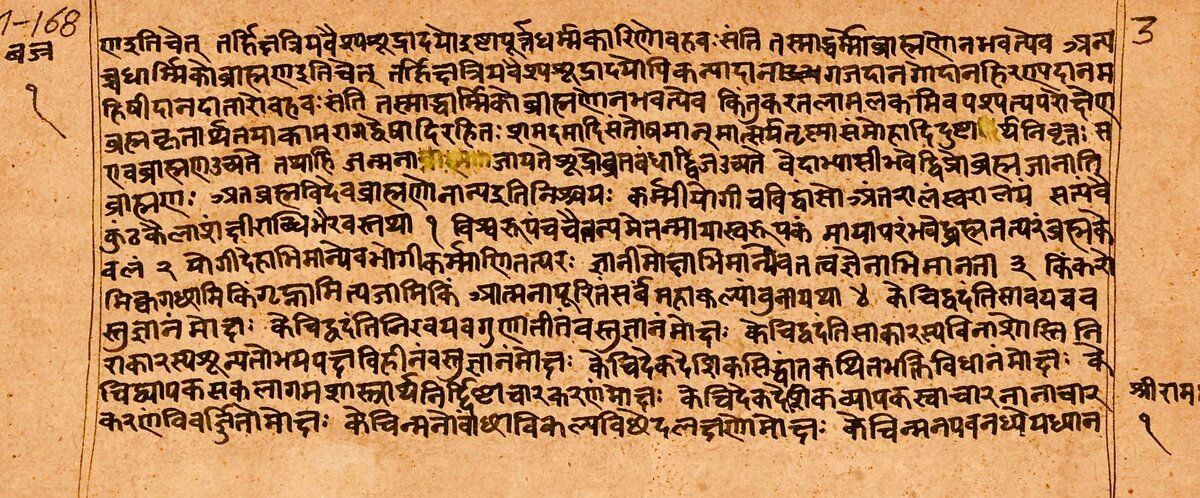 1-168
3
वज्र
१
ण इति चेत् तर्हि क्षत्रियवैश्यशूद्रादयो इष्टापूर्त्तधर्मकारिणो बहवः संति तस्माद्धर्मो ब्राह्मणो न भवत्येव अन्य
च्च धार्मिको ब्राह्मण इति चेत् तर्हि क्षत्रियवैश्यशूद्रादयोपि कन्यादान गजदान गोदान हिरण्यदान म
हिषीदान दातारो बहवः संति तस्माद्धार्मिको ब्राह्मणो न भवत्येव किंतु करतलामलकमिव पश्यत्यपरोक्षेण
ब्रह्मकृतार्थतया कामरागद्वेषादिरहितः शमदमादिसंतोषमान् मात्सर्यतृष्णासंमोहादिदुष्टा र्यनिवृत्तः स
एव ब्राह्मण उच्यते तथाहि जन्मना जायते शूद्रो व्रतबंधाद्द्विज उच्यते वेदाभ्यासी भवेद्विप्रो ब्रह्म जानाति
ब्राह्मणः अत ब्रह्मविदेव ब्राह्मणो नान्य इति निश्चयः कर्म्मी योगी च विद्वांसो अंतरालं स्वरालय सत्यवै
कुंठकैलाशं क्षीराब्धि भैरवस्तथा १ विश्वरूपं च चैतन्यमेतन्मायास्वरूपकं मायापरं भवेद्ब्रह्म तत्परं ब्रह्मके
वलं २ योगी देहाभिमान्येव भोगी कर्म्माणि तत्परः ज्ञानी मोक्षाभिमान्येव तत्वज्ञे नाभिमानता ३ किं करो
मि क्व गछामि किं गृह्णामि त्यजामि किं आत्मना पूरितं सर्वं महाकल्पांबुना यथा ४ केचिद्वदंति सावयवव
स्तुज्ञानं मोक्षः केचिद्वदंति निरवयवगुणातीतवस्तुज्ञानं मोक्षः केचिद्वदंति साकारस्य विनाशोस्ति नि
राकारस्य शून्यतोभयपक्षविहीनं वस्तुज्ञानं मोक्षः केचिदेकदेशिकसिद्धांतकथितभक्तिविधानं मोक्षः के
चिद्व्यापकसकलागमशास्त्रार्थनिर्दिष्टाचारकरणं मोक्षः केचिदेकदेशिकव्यापकस्वाचारनानाचार
करणविवर्जितो मोक्षः केचिन्मनोवांछाविकल्पविछेदलक्षणो मोक्षः केचिन्मनपवनध्येयध्यान
श्रीराम
१